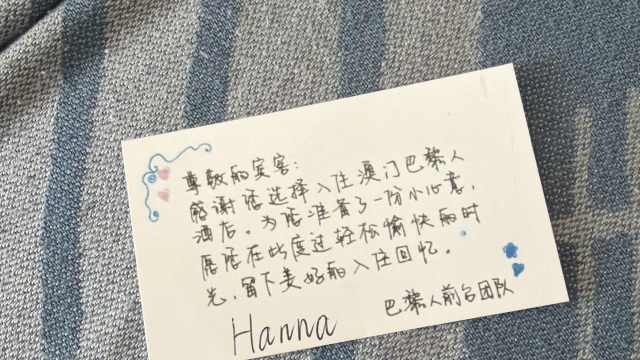 尊敬的宾客：
感谢您选择入住澳门巴黎人
酒店。为您准备了一份小心意，
愿您在此度过轻松愉快的时
光，留下美好的入住回忆。
巴黎人前台团队
Hanna